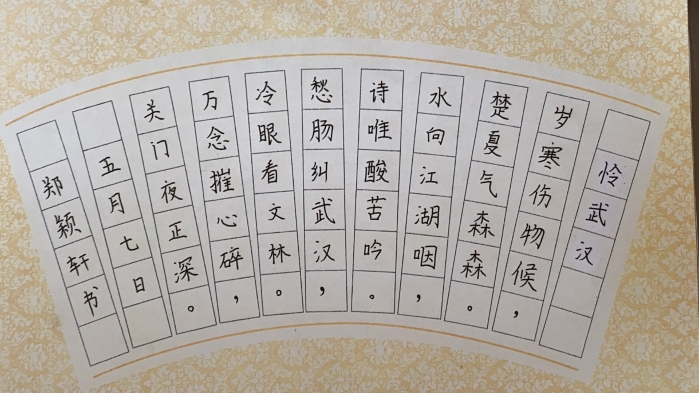 怜武汉
岁寒伤物候，
楚夏气森森。
水向江湖咽，
诗唯酸苦吟。
愁肠纠武汉，
冷眼看文林。
万念摧心碎，
关门夜正深。
五月七日
郑颖轩书